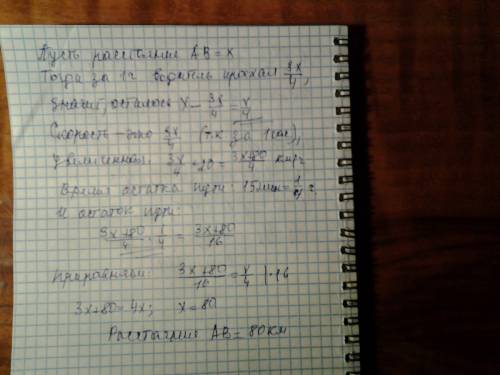 Пусть расстояние AB = x
Тогда за 1ч водитель проехал 3x/4,
значит, осталось x - 3x/4 = x/4
Скорость - это 3x/4 (т.к за 1час),
увеличенная: 3x/4 + 20 = 3x+80/4 км/ч
Время остатка пути: 15мин = 1/4 ч.
И остаток пути:
3x+80/4 · 1/4 = 3x+80/16
Приравняем: 3x+80/16 = x/4 | · 16
3x+80 = 4x; x = 80
Расстояние AB = 80км